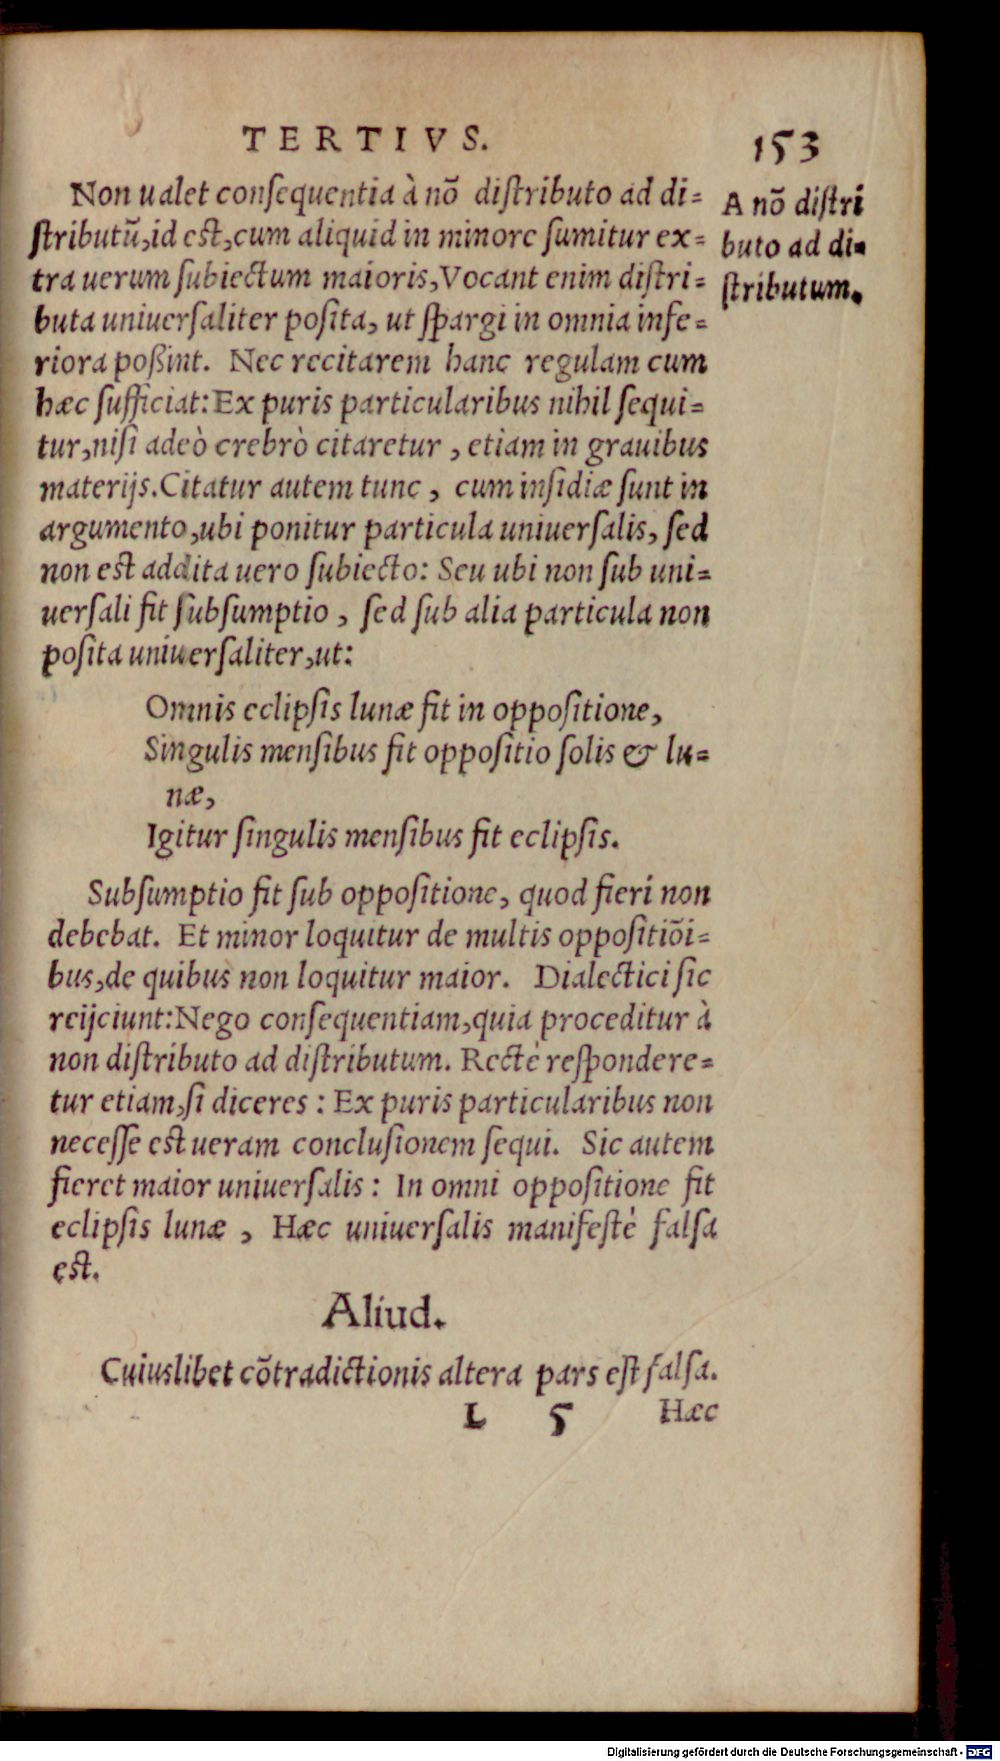 TERTIVS. 153
Non ualet consequentia à nō distributo ad di=
stributū, id est, cum aliquid in minore sumitur ex=
tra uerum subiectum maioris, Vocant enim distri=
buta uniuersaliter posita, ut spargi in omnia infe=
riora poßint. Nec recitarem hanc regulam cum
hæc sufficiat: Ex puris particularibus nihil sequi=
tur, nisi adeò crebrò citaretur, etiam in grauibus
materijs. Citatur autem tunc, cum insidiæ sunt in
argumento, ubi ponitur particula uniuersalis, sed
non est addita uero subiecto: Seu ubi non sub uni=
uersali fit subsumptio, sed sub alia particula non
posita uniuersaliter, ut:
A nō distri
buto ad di=
stributum.
Omnis eclipsis lunæ fit in oppositione,
Singulis mensibus fit oppositio solis & lu=
næ,
Igitur singulis mensibus fit eclipsis.
Subsumptio fit sub oppositione, quod fieri non
debebat. Et minor loquitur de multis oppositiōi=
bus, de quibus non loquitur maior. Dialectici sic
reijciunt: Nego consequentiam, quia proceditur à
non distributo ad distributum. Rectè respondere=
tur etiam, si diceres: Ex puris particularibus non
necesse est ueram conclusionem sequi. Sic autem
fieret maior uniuersalis: In omni oppositione fit
eclipsis lunæ, Hæc uniuersalis manifestè falsa
est.
Aliud.
Cuiuslibet cōtradictionis altera pars est falsa.
L 5 Hæc
Digitalisierung gefördert durch die Deutsche Forschungsgemeinschaft - DFG